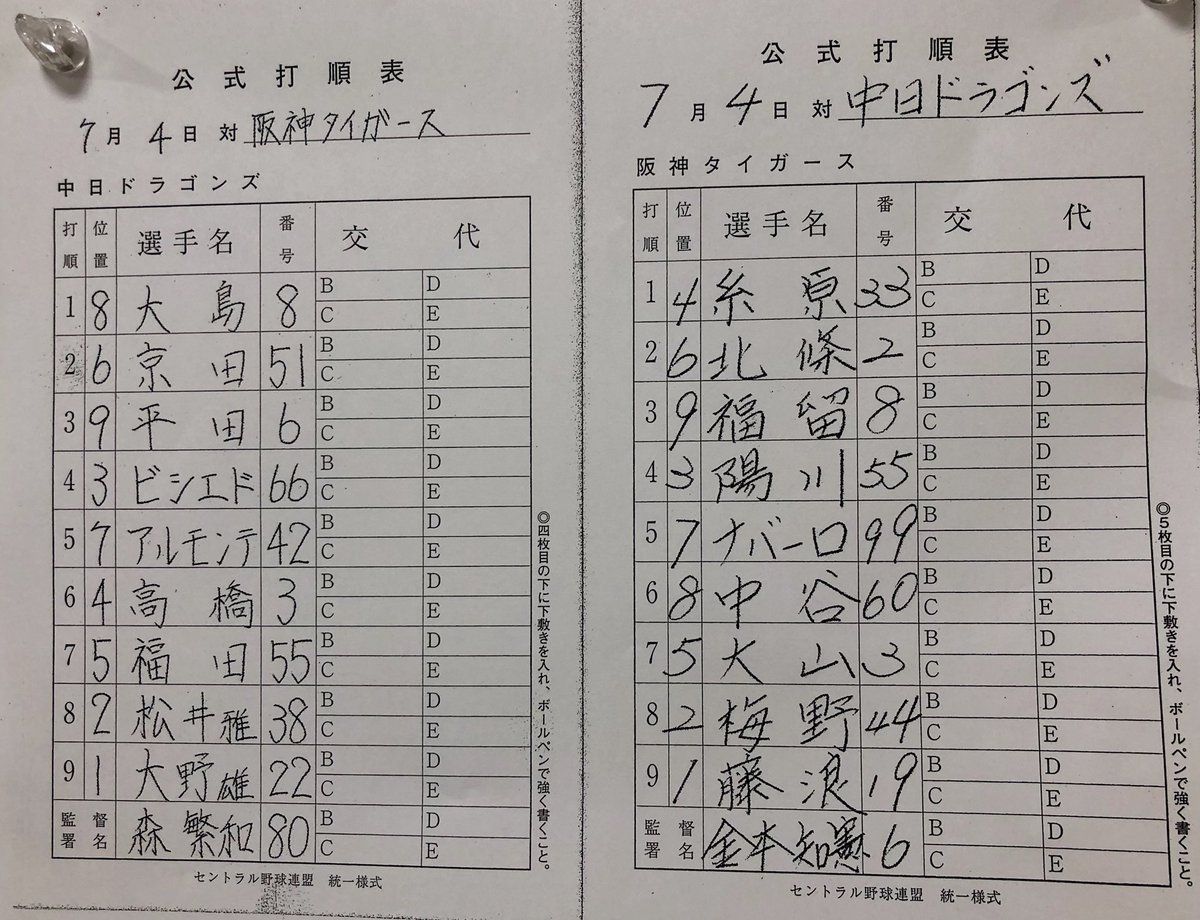 公式打順表
7月4日 対 阪神タイガース
中日ドラゴンズ
打順 位置 選手名 番号 交代
1 8 大島 8 B D
C E
2 6 京田 51 B D
C E
3 9 平田 6 B D
C E
4 3 ビシエド 66 B D
C E
5 7 アルモンテ 42 B D
C E
6 4 高橋 3 B D
C E
7 5 福田 55 B D
C E
8 2 松井雅 38 B D
C E
9 1 大野雄 22 B D
C E
監督署名 森繁和 80 B D
C E
セントラル野球連盟 統一様式
◎四枚目の下に下敷きを入れ、ボールペンで強く書くこと。
公式打順表
7月4日 対 中日ドラゴンズ
阪神タイガース
打順 位置 選手名 番号 交代
1 4 糸原 33 B D
C E
2 6 北條 2 B D
C E
3 9 福留 8 B D
C E
4 3 陽川 55 B D
C E
5 7 ナバーロ 99 B D
C E
6 8 中谷 60 B D
C E
7 5 大山 3 B D
C E
8 2 梅野 44 B D
C E
9 1 藤浪 19 B D
C E
監督署名 金本知憲 6 B D
C E
セントラル野球連盟 統一様式
◎5枚目の下に下敷きを入れ、ボールペンで強く書くこと。